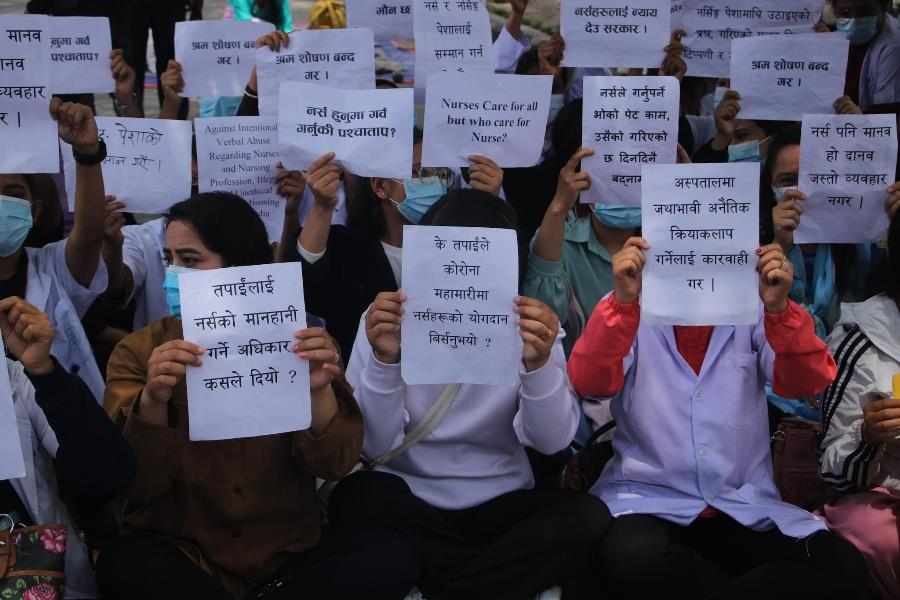 मानव
मानव
व्यवहार
र ।
हुनुमा गर्व
पश्चताप?
श्रम शोषण बन्द
गर ।
श्रम शोषण बन्द
गर ।
मौन
नर्स र नर्सिङ
पेशालाई
सम्मान गर्न
नर्सहरूलाई न्याय
देउ सरकार ।
नर्सिङ्ग पेशामाथि उठाइएको
प्रश्न, गरिएको
टिप्पणी
श्रम शोषण बन्द
गर ।
पेशाको
Against Intentional
Verbal Abuse
Regarding Nurses
and Nursing
Profession, Illegal
and Unethical
नर्स हुनुमा गर्व
गर्नुकी पश्चताप?
Nurses Care for all
but who care for
Nurse?
नर्सले गर्नुपर्ने
भोको पेट काम,
उसैको गरिएको
छ दिनदिनै
बदनाम
नर्स पनि मानव
हो दानव
जस्तो व्यवहार
नगर ।
तपाईंलाई
नर्सको मानहानी
गर्ने अधिकार
कसले दियो ?
के तपाईंले
कोरोना
महामारीमा
नर्सहरूको योगदान
बिर्सनुभयो ?
अस्पतालमा
जथाभावी अनैतिक
क्रियाकलाप
गर्नेलाई कारवाही
गर ।